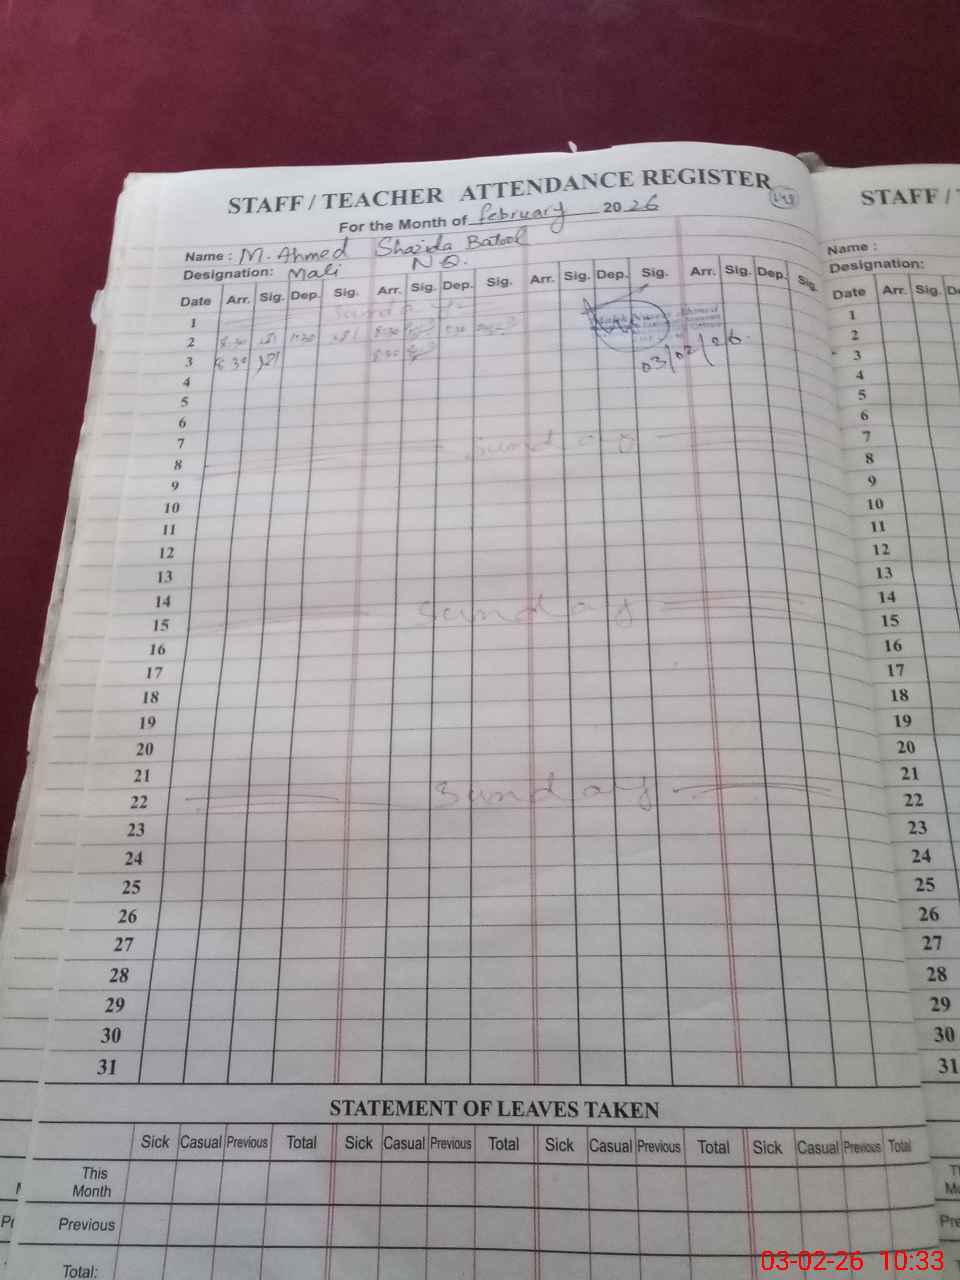 STAFF / TEACHER ATTENDANCE REGISTER
For the Month of February 2026
Name : M. Ahmed Shazda Batool
Designation: Mali N Q.
Date Arr. Sig. Dep. Sig. Arr. Sig. Dep. Sig. Arr. Sig. Dep. Sig. Arr. Sig. Dep. Sig.
1 Sunday
2 8:30 8:30
3 8:30 8:30 03/02/26
4
5
6
7
8 Sunday
9
10
11
12
13
14
15 Sunday
16
17
18
19
20
21
22 Sunday
23
24
25
26
27
28
29
30
31
STATEMENT OF LEAVES TAKEN
Sick Casual Previous Total Sick Casual Previous Total Sick Casual Previous Total Sick Casual Previous Total
This Month
Previous
Total:
STAFF /
Name :
Designation:
Date Arr. Sig.
1
2
3
4
5
6
7
8
9
10
11
12
13
14
15
16
17
18
19
20
21
22
23
24
25
26
27
28
29
30
31
03-02-26 10:33